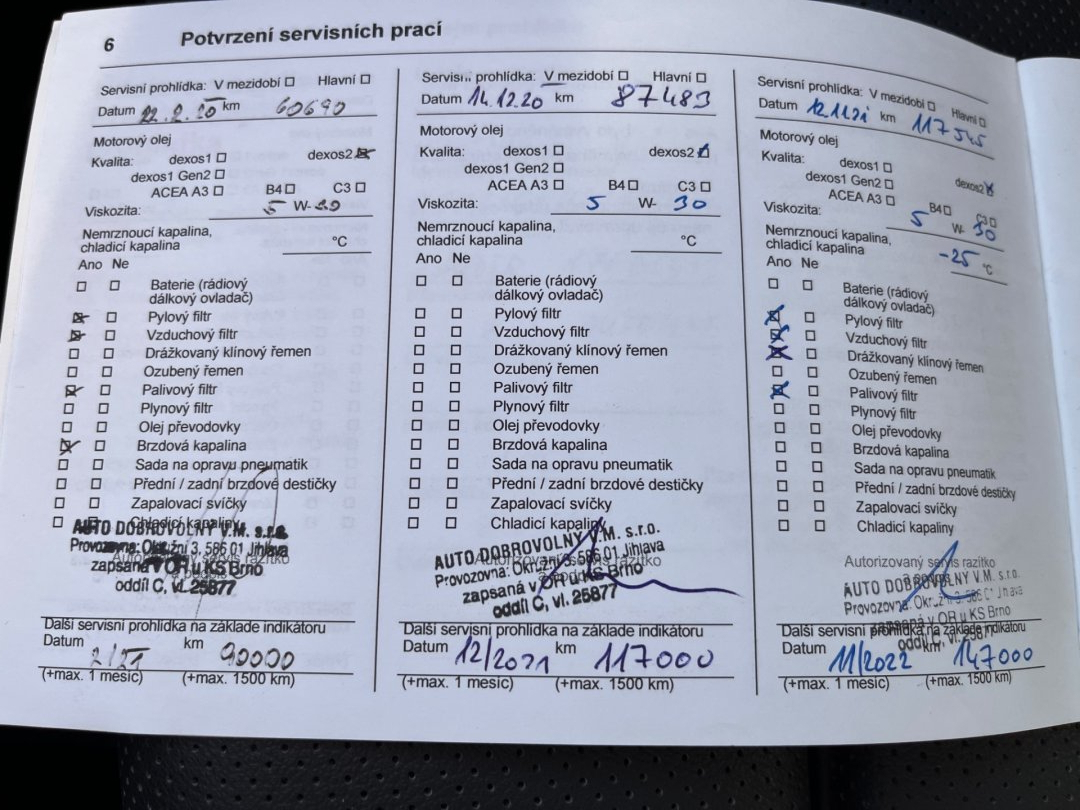 6 Potvrzení servisních prací
Servisní prohlídka: V mezidobí □ Hlavní □
Datum 22.2.20 km 60690
Motorový olej
Kvalita: dexos1 □ dexos2 ☒
dexos1 Gen2 □
ACEA A3 □ B4 □ C3 □
Viskozita: 5 W-30
Nemrznoucí kapalina,
chladicí kapalina °C
Ano Ne
□ □ Baterie (rádiový
dálkový ovladač)
☒ □ Pylový filtr
☒ □ Vzduchový filtr
□ □ Drážkovaný klínový řemen
□ □ Ozubený řemen
☒ □ Palivový filtr
□ □ Plynový filtr
□ □ Olej převodovky
☒ □ Brzdová kapalina
□ □ Sada na opravu pneumatik
□ □ Přední / zadní brzdové destičky
□ □ Zapalovací svíčky
□ □ Chladicí kapaliny
AUTO DOBROVOLNÝ V.M. s.r.o.
Provozovna: Okružní 3, 586 01 Jihlava
zapsaná v OR u KS Brno
oddíl C, vl. 25877
Další servisní prohlídka na základě indikátoru
Datum 2/21 km 90000
(+max. 1 měsíc) (+max. 1500 km)
Servisní prohlídka: V mezidobí □ Hlavní □
Datum 14.12.20 km 87483
Motorový olej
Kvalita: dexos1 □ dexos2 ☒
dexos1 Gen2 □
ACEA A3 □ B4 □ C3 □
Viskozita: 5 W- 30
Nemrznoucí kapalina,
chladicí kapalina °C
Ano Ne
□ □ Baterie (rádiový
dálkový ovladač)
□ □ Pylový filtr
□ □ Vzduchový filtr
□ □ Drážkovaný klínový řemen
□ □ Ozubený řemen
□ □ Palivový filtr
□ □ Plynový filtr
□ □ Olej převodovky
□ □ Brzdová kapalina
□ □ Sada na opravu pneumatik
□ □ Přední / zadní brzdové destičky
□ □ Zapalovací svíčky
□ □ Chladicí kapaliny
AUTO DOBROVOLNÝ V.M. s.r.o.
Autorizovaný servis razítko
Provozovna: Okružní 3, 586 01 Jihlava
zapsaná v OR u KS Brno
oddíl C, vl. 25877
Další servisní prohlídka na základě indikátoru
Datum 12/2021 km 117000
(+max. 1 měsíc) (+max. 1500 km)
Servisní prohlídka: V mezidobí □ Hlavní □
Datum 12.11.21 km 117545
Motorový olej
Kvalita: dexos1 □ dexos2 ☒
dexos1 Gen2 □
ACEA A3 □ B4 □ C3 □
Viskozita: 5 W- 30
Nemrznoucí kapalina,
chladicí kapalina -25 °C
Ano Ne
□ □ Baterie (rádiový
dálkový ovladač)
☒ □ Pylový filtr
☒ □ Vzduchový filtr
☒ □ Drážkovaný klínový řemen
□ □ Ozubený řemen
☒ □ Palivový filtr
□ □ Plynový filtr
□ □ Olej převodovky
□ □ Brzdová kapalina
□ □ Sada na opravu pneumatik
□ □ Přední / zadní brzdové destičky
□ □ Zapalovací svíčky
□ □ Chladicí kapaliny
Autorizovaný servis razítko
AUTO DOBROVOLNÝ V.M. s.r.o.
Provozovna: Okružní 3, 586 01 Jihlava
zapsaná v OR u KS Brno
Další servisní prohlídka na základě indikátoru
Datum 11/2022 km 147000
(+max. 1 měsíc) (+max. 1500 km)